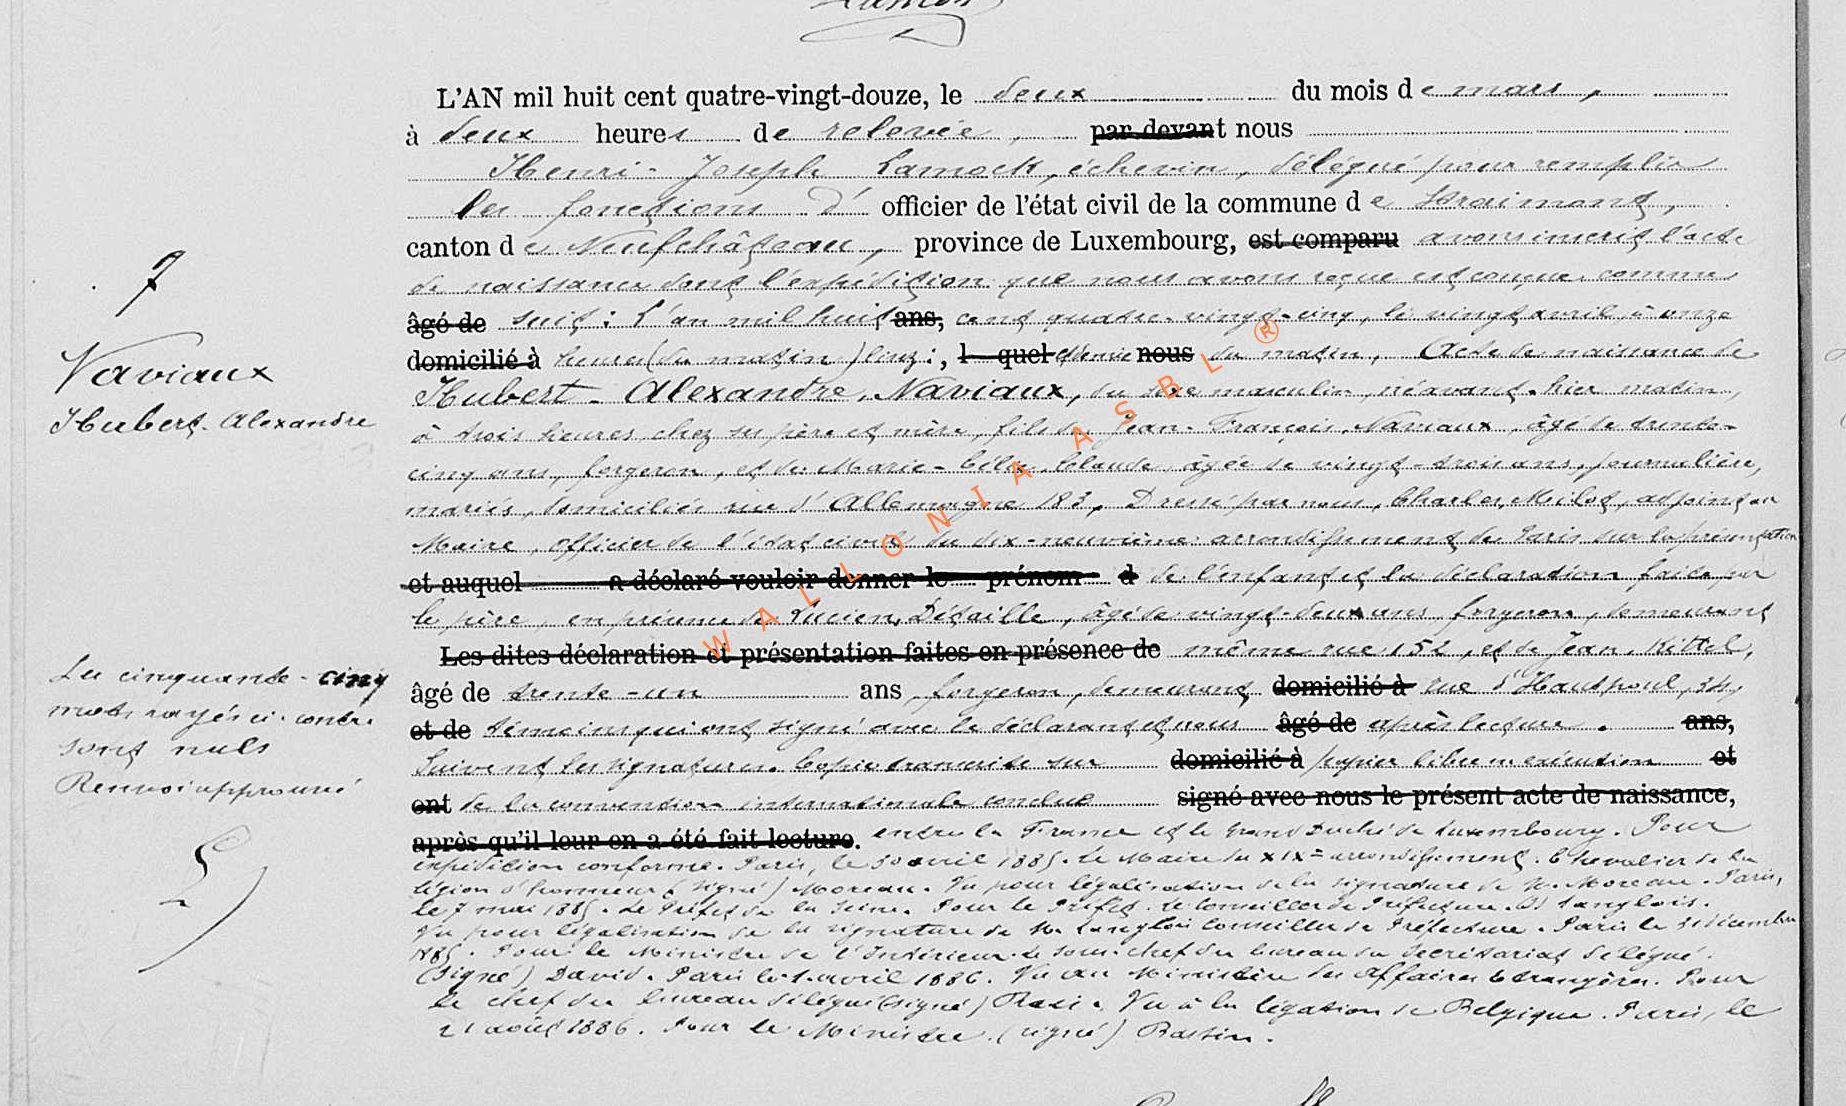 L'AN mil huit cent quatre-vingt-douze, le deux du mois de mars,
à deux heures de relevée, par devant nous
Henri-Joseph Lamock, échevin, délégué pour remplir
les fonctions d' officier de l'état civil de la commune de Straimont,
canton de Neufchâteau, province de Luxembourg, est comparu avons inscrit l'acte
de naissance dont l'expédition que nous avons reçue est conçue comme
7
âgé de suit: L'an mil huit ans, cent quatre-vingt-cinq, le vingt avril, à onze
domicilié à heures (du matin) , l quel nous du matin, Acte de naissance de
Naviaux
Hubert-Alexandre
Hubert-Alexandre, Naviaux, du sexe masculin, né avant-hier matin,
à trois heures, chez ses père et mère, fils de Jean-François, Naviaux, âgé de trente-
cinq ans, forgeron, et de Marie-Célix, Claude, âgée de vingt-trois ans, journalière,
mariés, domiciliés rue d'Allemagne 183, Dressé par nous, Charles, Milot, adjoint au
Maire, officier de l'état civil du dix-neuvième arrondissement de Paris sur la présentation
et auquel a déclaré vouloir donner le prénom d de l'enfant et la déclaration faite par
le père, en présence de Lucien, Détaille, âgé de vingt-deux ans, forgeron, demeurant
Les dites déclaration et présentation faites en présence de même rue 152, et de Jean, Kittel,
âgé de trente-un ans, forgeron, demeurant domicilié à rue d'Hautpoul, 34,
et de témoins qui ont signé avec le déclarant et nous âgé de après lecture. ans,
Suivent les signatures. Copie transcrite sur domicilié à papier libre en exécution et
ont de la convention internationale conclue signé avec nous le présent acte de naissance,
après qu'il leur en a été fait lecture. entre la France et le grand Duché de Luxembourg. Pour
Les cinquante-cinq
mots rayés ci-contre
sont nuls
Renvoi approuvé
L
expédition conforme. Paris, le 30 avril 1885. Le Maire du XIXe arrondissement. Chevalier de la
légion d'honneur (signé) Moreau. Vu pour légalisation de la signature de M. Moreau. Paris,
le 7 mai 1885. Le Préfet de la Seine. Pour le Préfet. Le Conseiller de Préfecture. Langlois.
Vu pour légalisation de la signature de M. Langlois Conseiller de Préfecture. Paris le 31 décembre
1885. Pour le Ministre de l'Intérieur le sous-chef du bureau du secrétariat délégué.
(Signé) David. Paris le 1 avril 1886. Vu au Ministère des affaires étrangères. Pour
le chef du bureau délégué (signé) Vu à la légation de Belgique. Paris, le
21 août 1886. Pour le Ministre (signé) Bastin.
WALLONIA ASBL ®